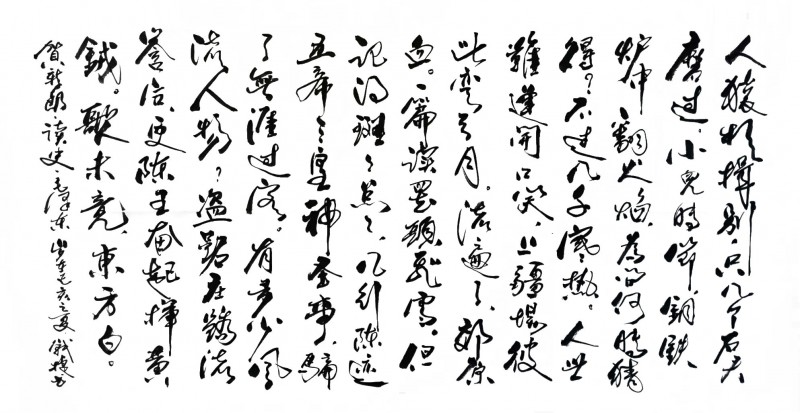 人猿相揖别。只几个石头
磨过,小儿時節。铜铁
炉中翻火焰,為问何時猜
得?不过几千寒热。人世
難逢開口笑,上疆場彼
此弯弓月。流遍了,郊原
血。一篇读罷頭飛雪,但
记得斑斑点点,几行陈迹
五帝三皇神圣事,騙
了無涯过客。有多少風
流人物?盗跖庄蹻流
誉后,更陈王奋起挥黄
钺。歌未竟,東方白。
贺新郎·读史·毛泽东 岁在己亥之夏 书